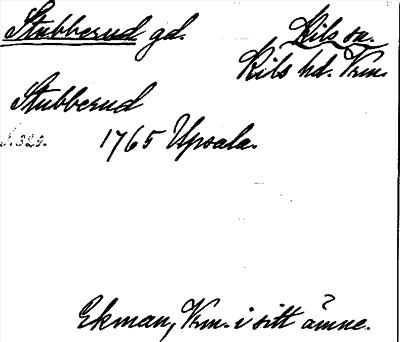 Stubberud gd. Kils sn.
Kils hd. Vrm.
Stubberud
S. 329. 1765 Upsala.
Ekman, Vrm. i sitt ämne.